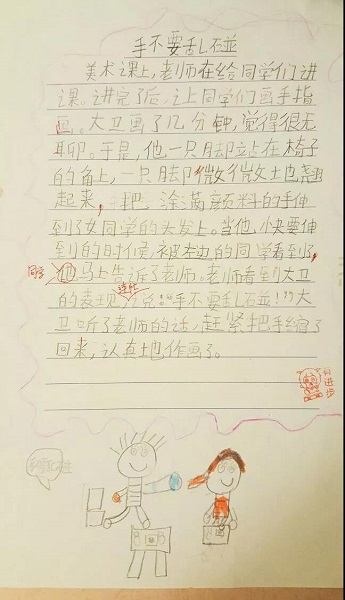 手不要乱碰
美术课上,老师在给同学们讲
课。讲完了后,让同学们画手指
画。大卫画了几分钟,觉得很无
聊。于是,他一只脚站在椅子
的角上,一只脚微微土也翘
起来,把涂满颜料的手伸
到了女同学的头发上。当他快要伸
到的时候,被左边的同学看到了,
同学他马上告诉了老师。老师看到大卫
的表现连忙说:“手不要乱碰!”大
卫听了老师的话,赶紧把手缩了
回来,认真地作画了。
有进步